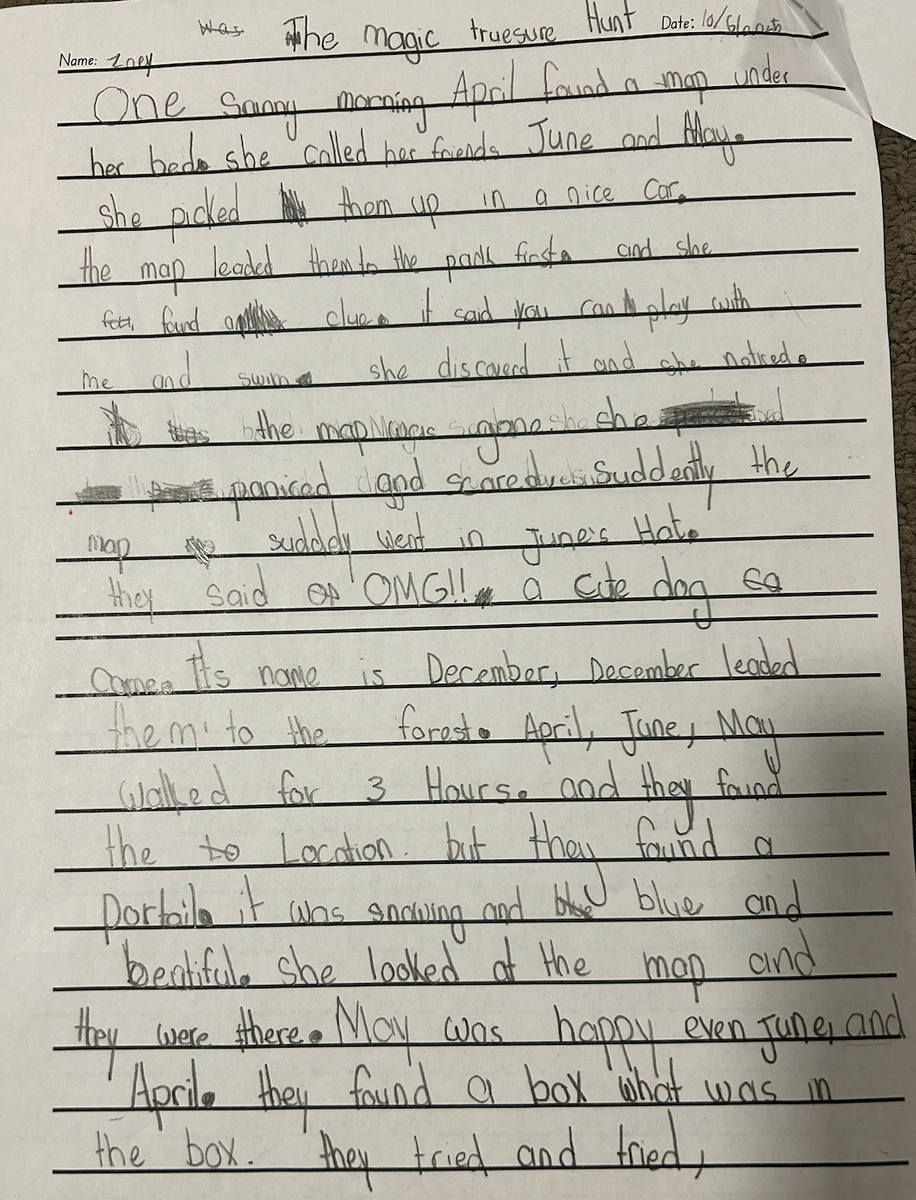 The magic truesure Hunt Date: 10/6/
Name: Zoey
One sanny morning April found a map under
her bed. she called her friends June and May.
She picked them up in a nice car.
the map leaded them to the park first. and she
found a clue. it said you can play with
me and swim. she discoverd it and she noticed.
the map gone. she
paniced and scared. Suddently the
map sudddly went in June's Hat.
they said OMG!! a cute dog ca
came. It's name is December, December leaded
them to the forest. April, June, May
walked for 3 Hours. and they found
the Location. but they found a
Portail. it was snowing and blue and
beatiful. She looked at the map and
they were there. May was happy even June, and
April. they found a box what was in
the box. they tried and tried,